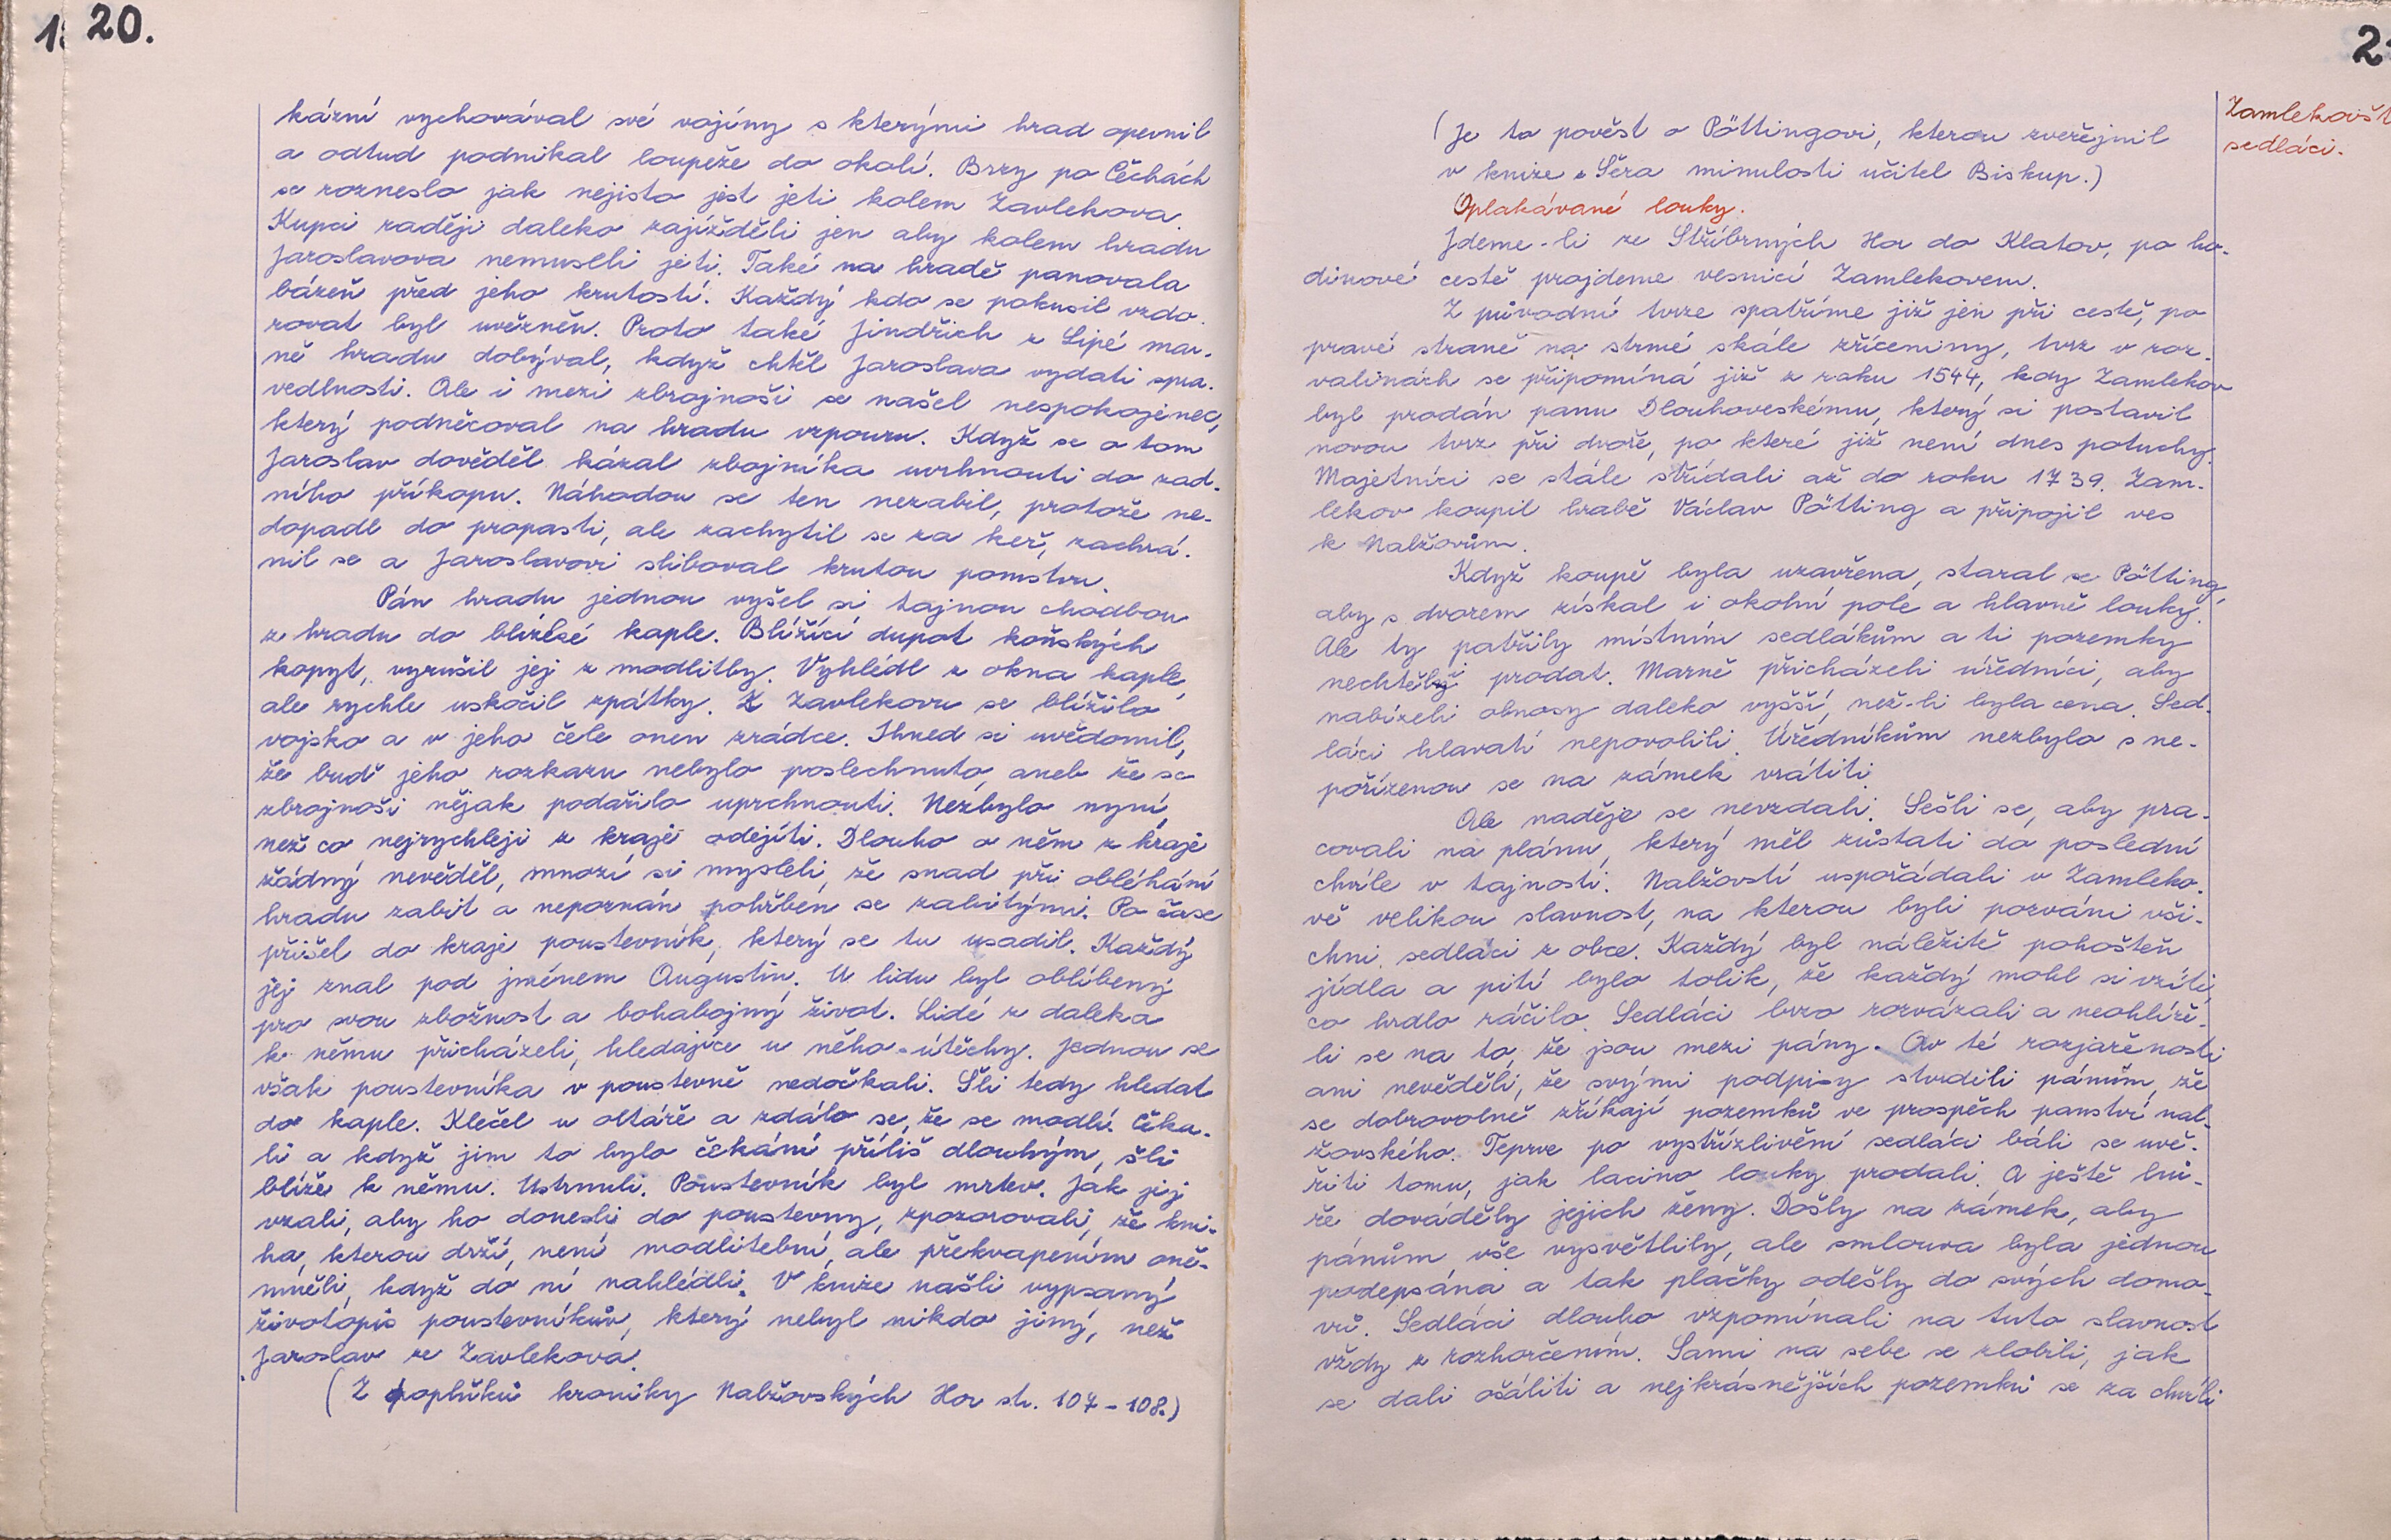 20.
kázní vychovával své vojíny s kterými hrad opevnil
a odtud podnikal loupeže do okolí. Brzy po Čechách
se rozneslo jak nejisto jest jeti kolem Zavlekova.
Kupci raději daleko zajížděli jen aby kolem hradu
Jaroslavova nemuseli jeti. Také na hradě panovala
bázeň před jeho krutostí. Každý kdo se pokusil vzdo-
rovat byl uvězněn. Proto také Jindřich z Lipé mar-
ně hradu dobýval, když chtěl Jaroslava vydati spra-
vedlnosti. Ale i mezi zbrojnoši se našel nespokojenec,
který podněcoval na hradu vzpouru. Když se o tom
Jaroslav dověděl kázal zbojníka uvrhnouti do zad-
ního příkopu. Náhodou se ten nezabil, protože ne-
dopadl do propasti, ale zachytil se za keř, zachrá-
nil se a Jaroslavovi sliboval krutou pomstu.
Pán hradu jednou vyšel si tajnou chodbou
z hradu do blízké kaple. Blížící dupot koňských
kopyt, vyrušil jej z modlitby. Vyhlédl z okna kaple,
ale rychle uskočil zpátky. K Zavlekovu se blížilo
vojsko a v jeho čele onen zrádce. Ihned si uvědomil,
že buď jeho rozkazu nebylo poslechnuto aneb že se
zbrojnoši nějak podařilo uprchnouti. Nezbylo nyní,
než co nejrychleji z kraje odejíti. Dlouho o něm z kraje
žádný nevěděl, mnozí si mysleli, že snad při obléhání
hradu zabit a nepoznán pohřben se zabitými. Po čase
přišel do kraje poustevník, který se tu usadil. Každý
jej znal pod jménem Augustin. U lidu byl oblíbený
pro svou zbožnost a bohabojný život. Lidé z daleka
k němu přicházeli, hledajíce u něho útěchy. Jednou se
však poustevníka v poustevně nedočkali. Šli tedy hledat
do kaple. Klečel u oltáře a zdálo se, že se modlí. Čeka-
li a když jim to bylo čekání příliš dlouhým, šli
blíže k němu. Ustrnuli. Poustevník byl mrtev. Jak jej
vzali, aby ho donesli do poustevny, zpozorovali, že kni-
ha, kterou drží, není modlitební, ale překvapením oně-
měli, když do ní nahlédli. V knize našli vypsaný
životopis poustevníkův, který nebyl nikdo jiný, než
Jaroslav ze Zavlekova.
(Z poplňků kroniky Nalžovských Hor str. 107-108.)
Zamlekovšt
sedláci.
(Je to pověst o Pöttingovi, kterou zveřejnil
v knize Šera minulosti učitel Biskup.)
Oplakávané louky.
Jdeme-li ze Stříbrných Hor do Klatov, po ho-
dinové cestě projdeme vesnicí Zamlekovem.
Z původní tvrze spatříme již jen při cestě, po
pravé straně na strmé skále zříceniny, tvrz v roz-
valinách se připomíná již z roku 1544, kdy Zamlekov
byl prodán panu Dlouhoveskému, který si postavil
novou tvrz při dvoře, po které již není dnes potuchy.
Majetníci se stále střídali až do roku 1739. Zam-
lekov koupil hrabě Václav Pötting a připojil ves
k Nalžovům.
Když koupě byla uzavřena, staral se Pötting,
aby s dvorem získal i okolní pole a hlavně louky.
Ale ty patřily místním sedlákům a ti pozemky
nechtěli prodat. Marně přicházeli úředníci, aby
nabízeli obnosy daleko vyšší, než-li byla cena. Sed-
láci hlavatí nepovolili. Úředníkům nezbylo s ne-
pořízenou se na zámek vrátiti.
Ale naděje se nevzdali. Sešli se, aby pra-
covali na plánu, který měl zůstati do poslední
chvíle v tajnosti. Nalžovstí uspořádali v Zamleko-
vě velikou slavnost, na kterou byli pozváni vši-
chni sedláci z obce. Každý byl náležitě pohoštěn
jídla a pití bylo tolik, že každý mohl si vzíti
co hrdlo ráčilo. Sedláci brzo rozvázali a neohlíže-
li se na to, že jsou mezi pány. Av té rozjařenosti
ani nevěděli, že svými podpisy stvrdili pánům, že
se dobrovolně zříkají pozemků ve prospěch panství nal-
žovského. Teprve po vystřízlivění sedláci báli se uvě-
řiti tomu, jak lacino louky prodali. A ještě hů-
ře dováděly jejich ženy. Došly na zámek, aby
pánům vše vysvětlily, ale smlouva byla jednou
podepsána a tak plačky odešly do svých domo-
vů. Sedláci dlouho vzpomínali na tuto slavnost
vždy z rozhořčením. Sami na sebe se zlobili, jak
se dali ošáliti a nejkrásnějších pozemků se za chvíli